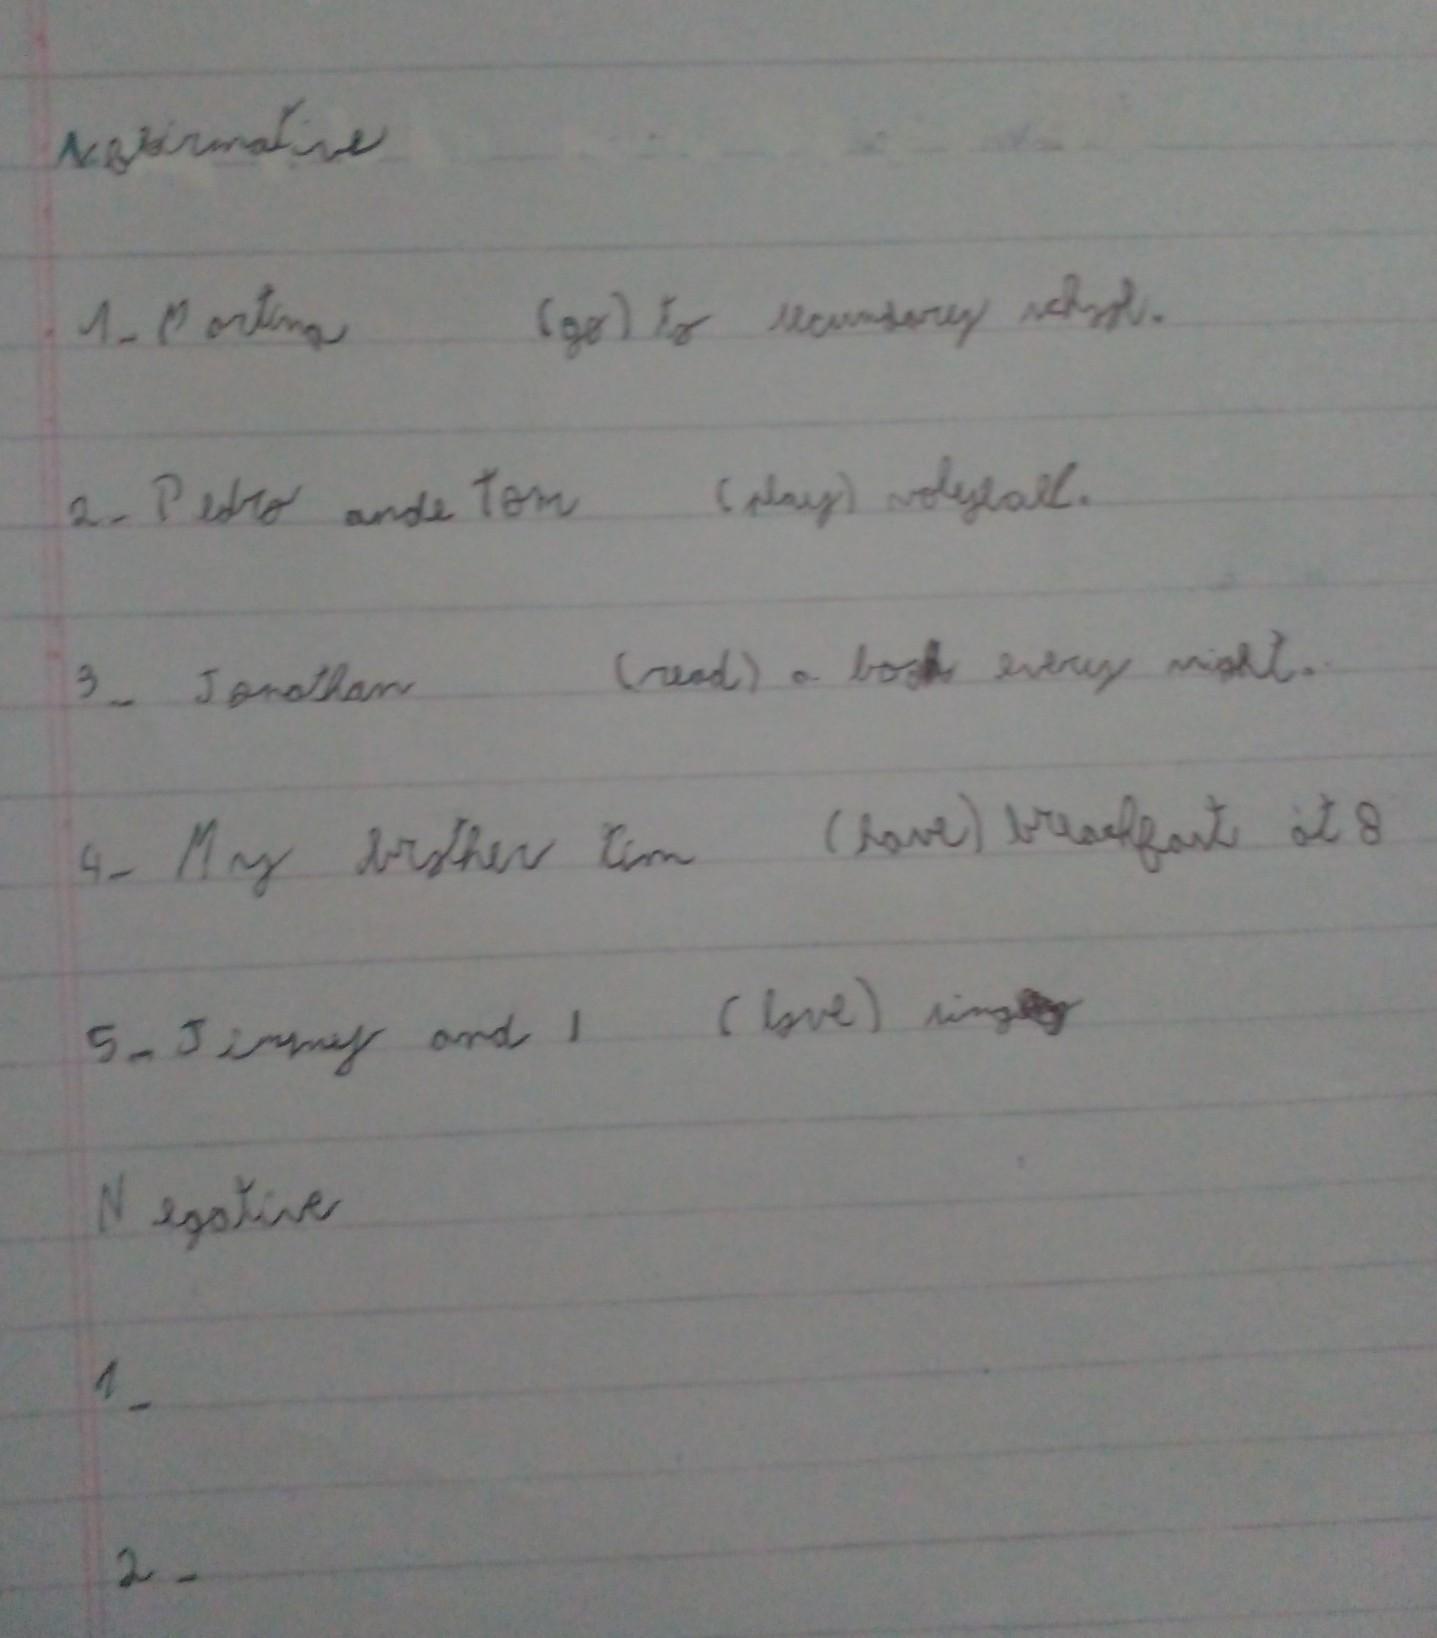 Affirmative
1- Martina (go) to secundarey school.
2- Pedro ande Tom (play) voleyball.
3- Jonathan (read) a book every night.
4- My brother tim (have) breackfast at 8
5- Jimmy and I (love)
Negative
1-
2-